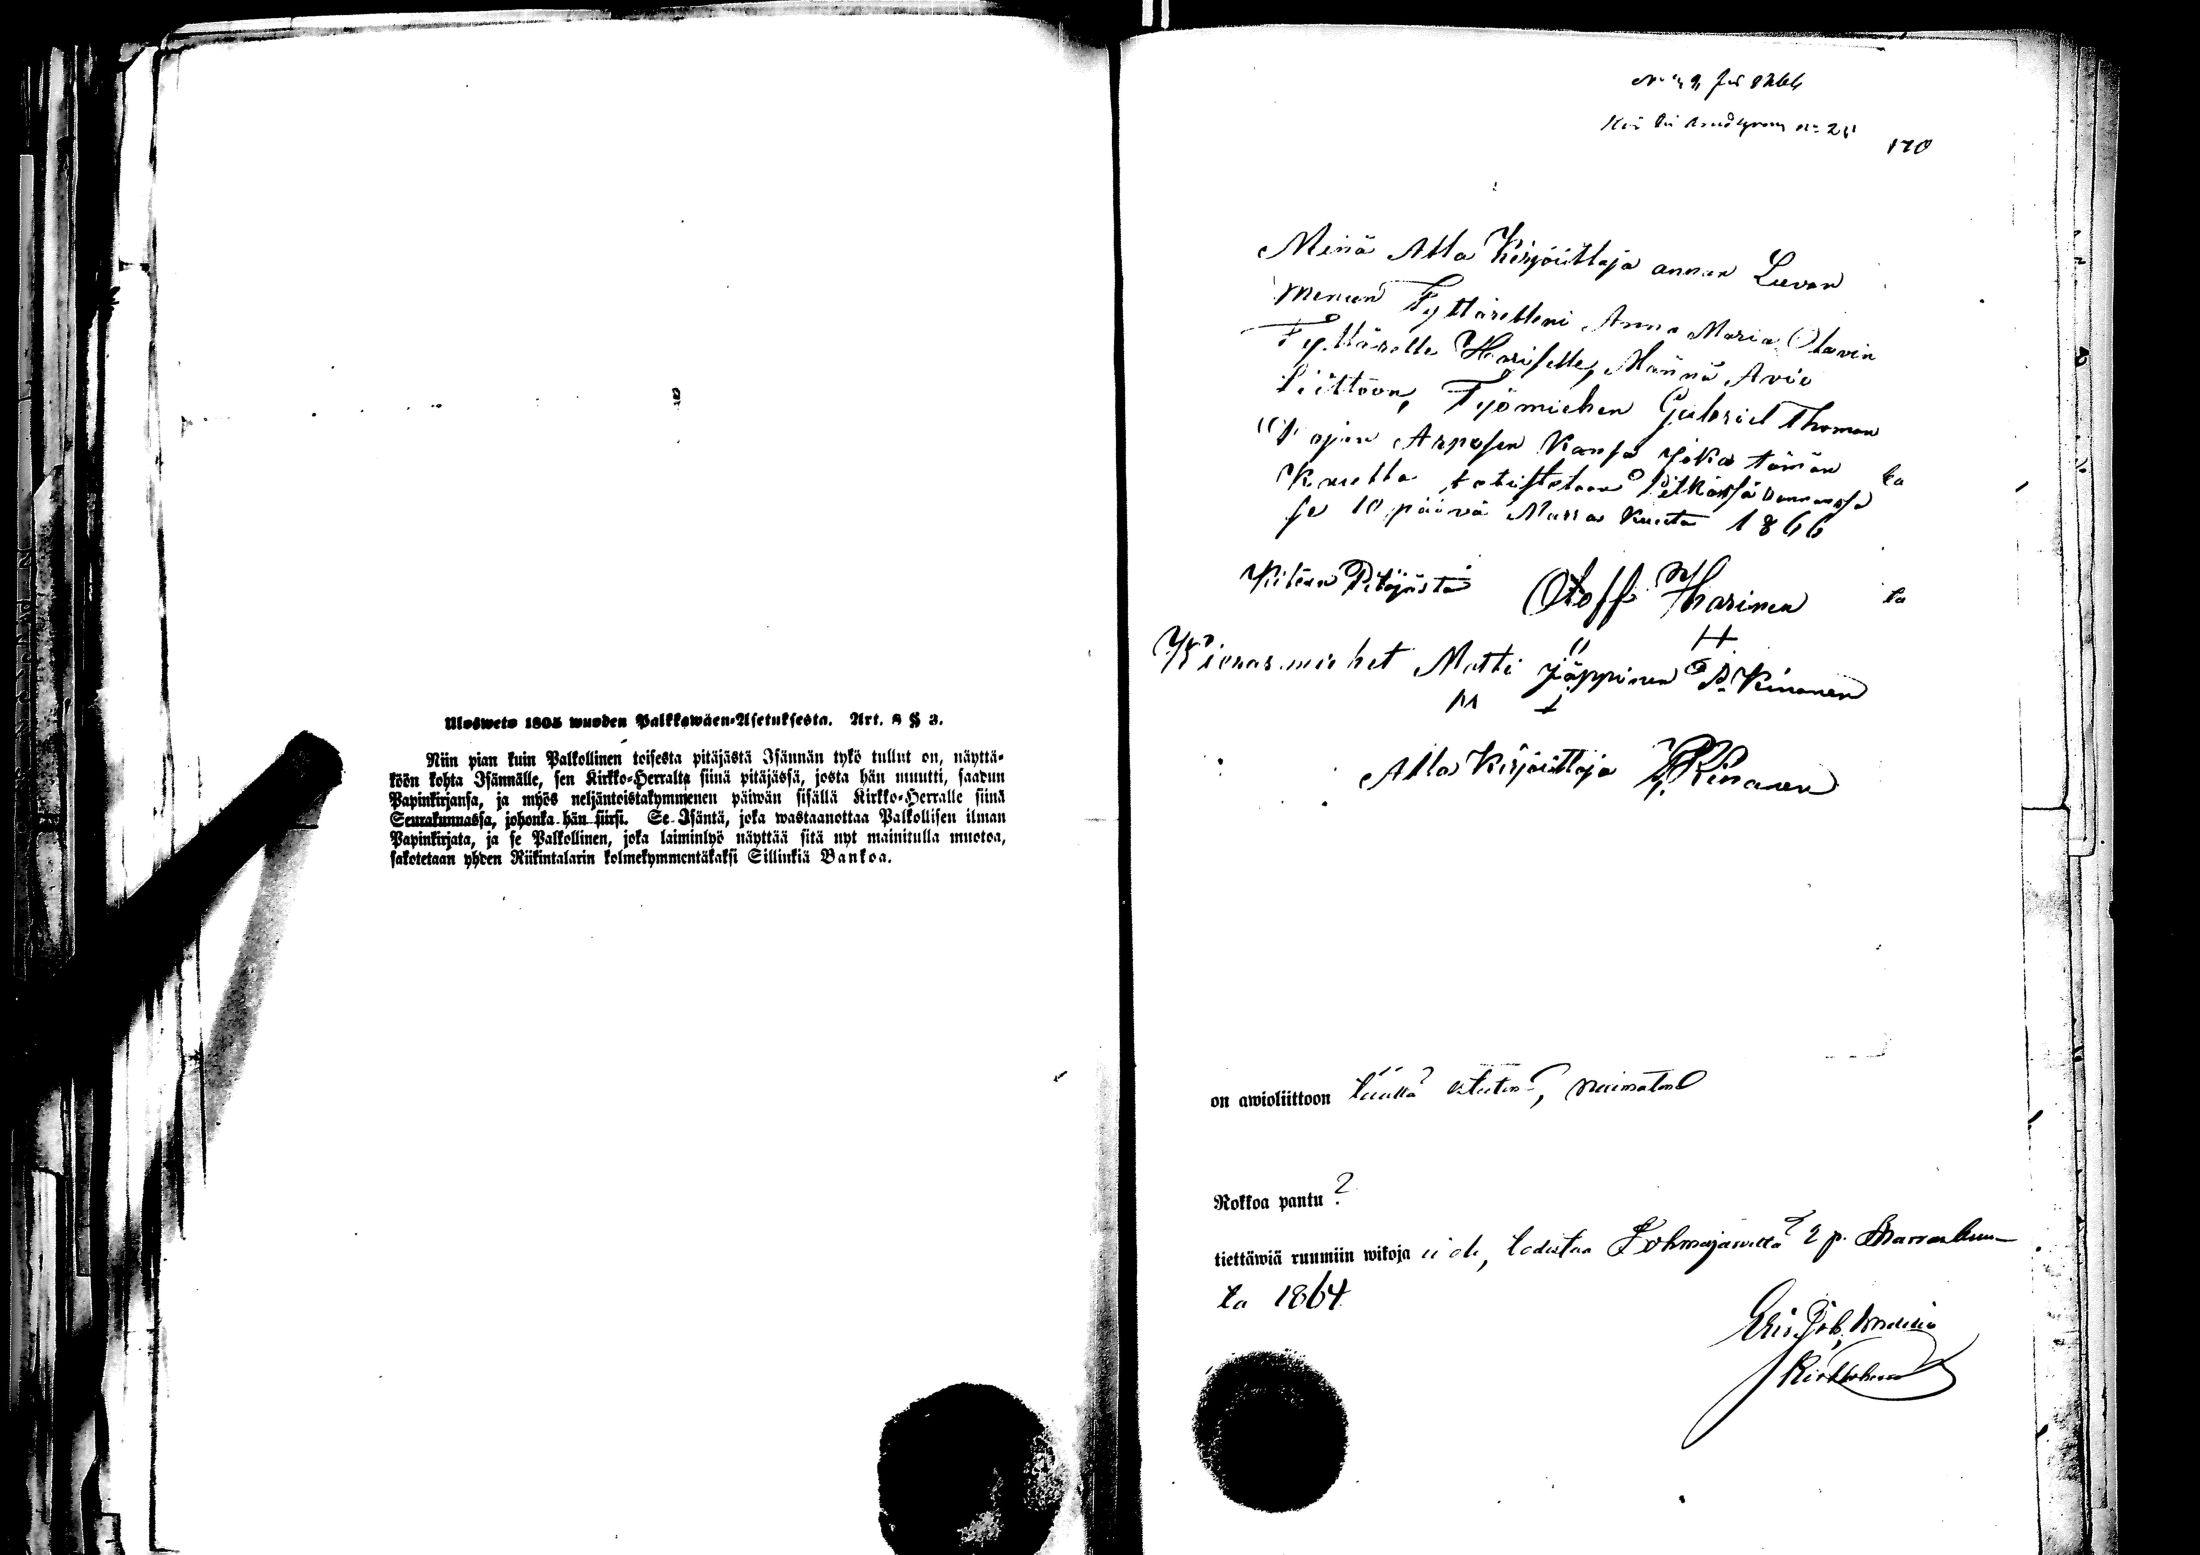 Ulosweto 1805 wuoden Palkkowäen-Asetuksesta. Art. 8 § 3.
Niin pian kuin Palkollinen toisesta pitäjästä Isännän tykö tullut on, näyttä-
köön kohta Isännälle, sen Kirkko-Herralta siinä pitäjässä, josta hän muutti, saadun
Papinkirjansa, ja myös neljäntoistakymmenen päiwän sisällä Kirkko-Herralle siinä
Seurakunnassa, johonka hän siirsi. Se Isäntä, joka wastaanottaa Palkollisen ilman
Papinkirjata, ja se Palkollinen, joka laiminlyö näyttää sitä nyt mainitulla muotoa,
sakotetaan yhden Riikintalarin kolmekymmentäkaksi Sillinkiä Bankoa.
170
Minä Alla Kirjoittaja annan Luvan
minun Tyttärelleni Anna Maria Olavin
Tyttärelle Hariselle, Männä Avio
liittoon, Työmiehen Gabriel Thoman
Pojan Arposen Kansa joka tämän
Kautta totistetaan Pitkässä
se 10 päivä Marras Kuuta 1866
ta
Kiteen Pitäjästä Oloff Harinen
ta
Wierasmiehet Matti Jäppinen P. Kinonen
Alla Kirjoittaja P. Kinonen
on awioliittoon naimaton
Rokkoa pantu ?
tiettäwiä ruumiin wikoja ei ole, todistaa Tohmajärwellä 2 p. Marraskuu-
ta 1864
Kirkkoherra